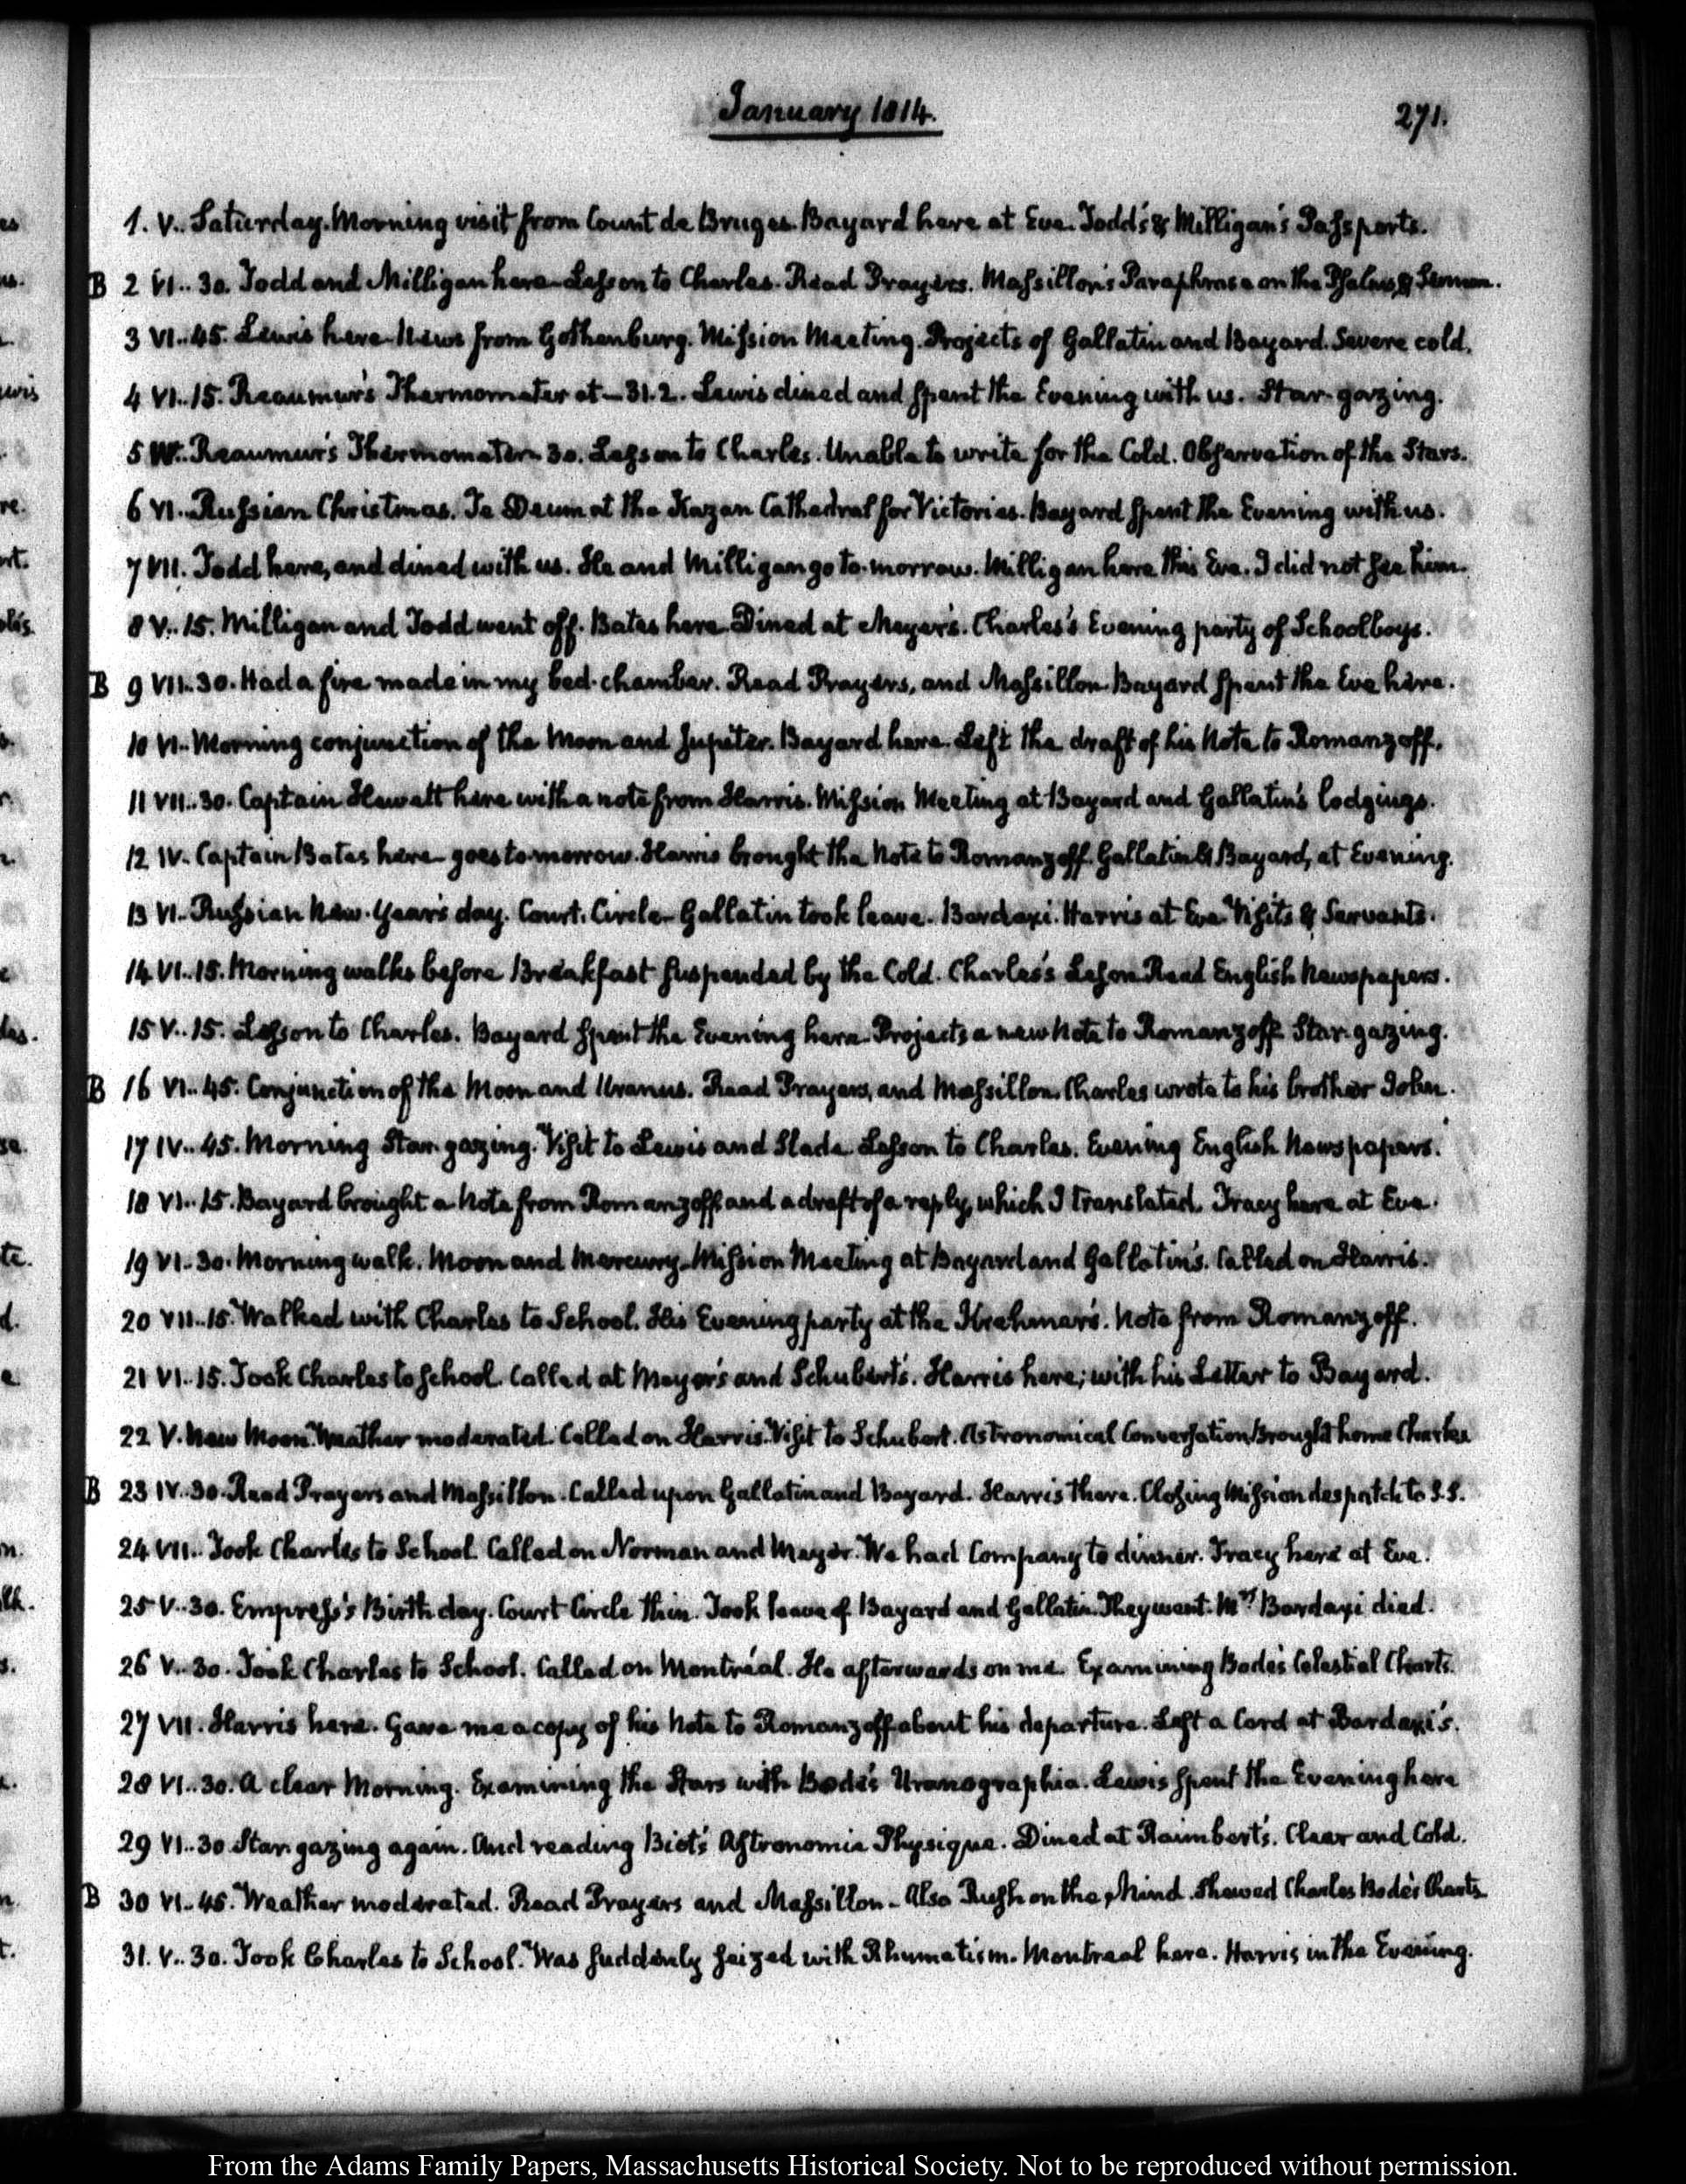 January 1814.
271.
1. V.. Saturday. Morning visit from Count de Bruges. Bayard here at Eve. Todd's & Milligan's Passports.
B 2 VI..30. Todd and Milligan here. Lesson to Charles. Read Prayers. Massillon's Paraphrase on the Psalms, & Sermon.
3 VI..45. Lewis here. News from Gothenburg. Mission Meeting. Projects of Gallatin and Bayard. Severe cold.
4 VI..15. Reaumur's Thermometer at -31.2. Lewis dined and spent the Evening with us. Star-gazing.
5 Reaumur's Thermometer - 30. Lesson to Charles. Unable to write for the Cold. Observation of the Stars.
6 VI.. Russian Christmas. Te Deum at the Kazan Cathedral for Victories. Bayard spent the Evening with us.
7 VII. Todd here, and dined with us. He and Milligan go to-morrow. Milligan here this Eve. I did not see him.
8 V..15. Milligan and Todd went off. Bates here. Dined at Meyer's. Charles's Evening party of Schoolboys.
B 9 VII..30. Had a fire made in my bed-chamber. Read Prayers, and Massillon. Bayard spent the Eve here.
10 VI.. Morning conjunction of the Moon and Jupiter. Bayard here. Left the draft of his Note to Romanzoff.
11 VII..30. Captain Hewatt here with a note from Harris. Mission Meeting at Bayard and Gallatin's lodgings.
12 IV. Captain Bates here - goes to-morrow. Harris brought the Note to Romanzoff. Gallatin & Bayard, at Evening.
13 VI.. Russian New-Year's day. Court. Circle - Gallatin took leave. Bardaxi. Harris at Eve. Visits & Servants.
14 VI..15. Morning walks before Breakfast suspended by the Cold. Charles's Lesson. Read English Newspapers.
15 V..15. Lesson to Charles. Bayard spent the Evening here. Projects a new Note to Romanzoff. Star-gazing.
B 16 VI..45. Conjunction of the Moon and Uranus. Read Prayers, and Massillon. Charles wrote to his brother John.
17 IV..45. Morning Star-gazing. Visit to Lewis and Slade. Lesson to Charles. Evening English Newspapers.
18 VI..15. Bayard brought a Note from Romanzoff and a draft of a reply, which I translated. Tracy here at Eve.
19 VI..30. Morning walk. Moon and Mercury. Mission Meeting at Bayard and Gallatin's. Called on Harris.
20 VII..15. Walked with Charles to School. His Evening party at the Krehmer's. Note from Romanzoff.
21 VI..15. Took Charles to School. Called at Meyer's and Schubert's. Harris here; with his Letter to Bayard.
22 V. New Moon. Weather moderated. Called on Harris. Visit to Schubert. Astronomical Conversation. Brought home Charles
B 23 IV..30. Read Prayers and Massillon. Called upon Gallatin and Bayard. Harris there. Closing Mission despatch to S.S.
24 VII.. Took Charles to School. Called on Norman and Meyer. We had Company to dinner. Tracy here at Eve.
25 V..30. Empress's Birth day. Court Circle thin. Took leave of Bayard and Gallatin. They went. Mrs. Bardaxi died.
26 V..30. Took Charles to School. Called on Montréal. He afterwards on me. Examining Bode's Celestial Charts.
27 VII. Harris here. Gave me a copy of his Note to Romanzoff about his departure. Left a Card at Bardaxi's.
28 VI..30. A clear Morning. Examining the Stars with Bode's Uranographia. Lewis spent the Evening here
29 VI..30 Star-gazing again. And reading Biot's Astronomie Physique. Dined at Raimbert's. Clear and Cold.
B 30 VI..45. Weather moderated. Read Prayers and Massillon - Also Rush on the Mind. Shewed Charles Bode's Charts
31. V..30. Took Charles to School. Was suddenly seized with Rhumatism. Montreal here. Harris in the Evening.
From the Adams Family Papers, Massachusetts Historical Society. Not to be reproduced without permission.